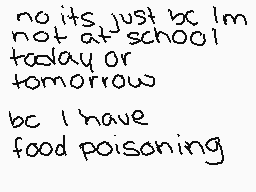 no its just bc Im
not at school
today or
tomorrow
bc I have
food poisoning